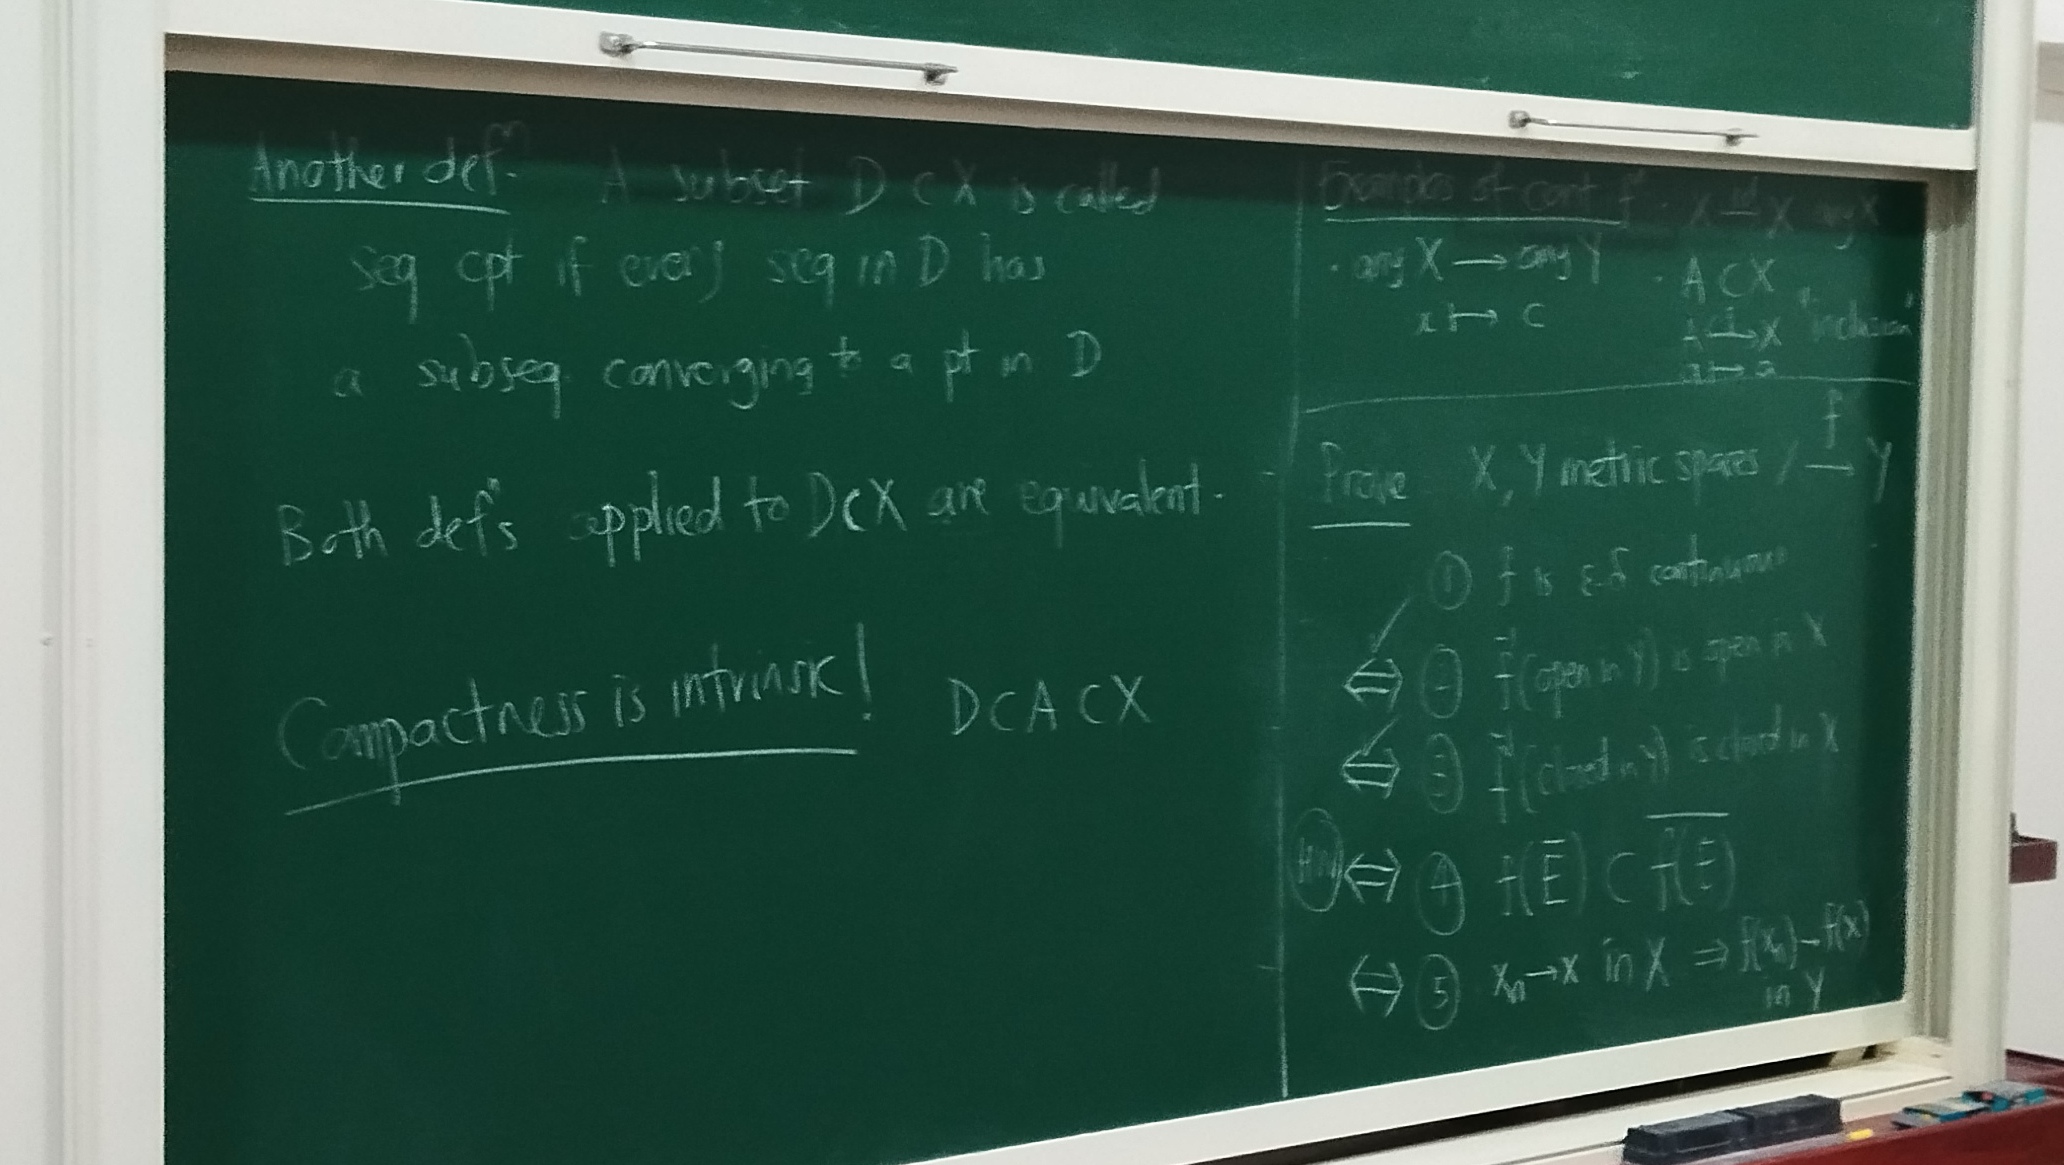 Another defⁿ. A subset D ⊂ X is called
seq cpt if every seq in D has
a subseq. converging to a pt in D
Both defⁿs applied to D⊂X are equivalent.
Compactness is intrinsic! D⊂A⊂X
Examples of cont fⁿ · X →id X any X
· any X → any Y
x ↦ c
· A ⊂ X
A →i X "inclusion"
a ↦ a
Prove X, Y metric spaces / →f Y
① f is ε-δ continuous
⇔ ② f⁻¹(open in Y) is open in X
⇔ ③ f⁻¹(closed in Y) is closed in X
HW ⇔ ④ f(E̅) ⊂ \overline{f(E)}
⇔ ⑤ xₙ→x in X ⇒ f(xₙ)→f(x)
in Y